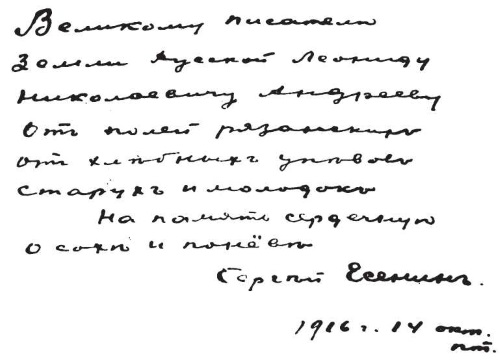 Великому писателю
Земли Русской Леониду
Николаевичу Андрееву
От полей рязанскихъ
от хлѣбныхъ упѣвовъ
старухъ и молодокъ
на память сердечную
о сохѣ и понёвѣ
Сергѣй Есенинъ.
1916 г. 14 окт.
пт.